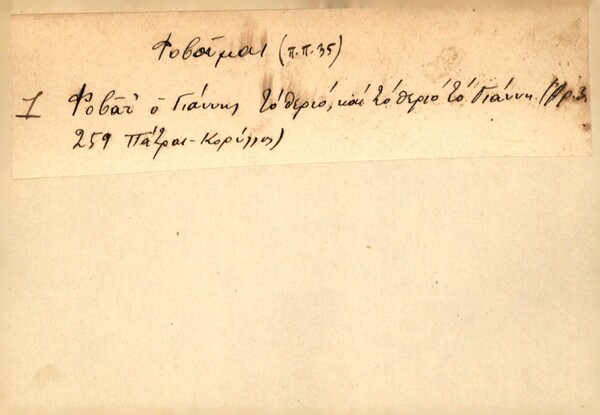 Φοβοῦμαι (π.π.35)
1 Φοβᾶτ' ὁ Γιάννης τό θεριό, καί τό θεριό τό Γιάννη. (Ἀρ.
259 Πάτραι - Κορύλλος)